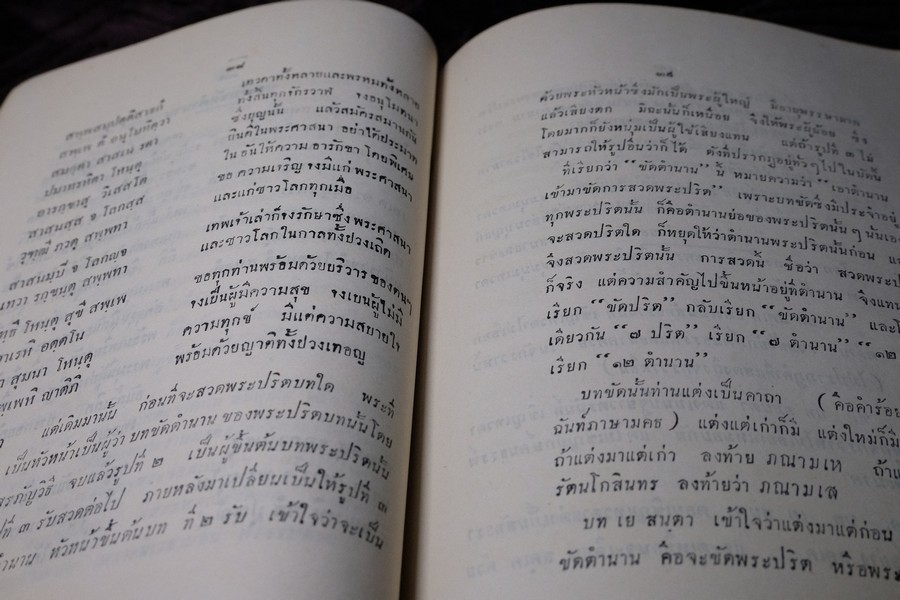 ๓๘
สพฺพสมฺปตฺติสิทฺธิ
สพฺเพ ตํ อนุโมทิตฺวา
สมคฺคา สาสเน รตา
ปมาทรหิตา โหนฺตุ
อารกฺขาสุ วิเสสโต
สาสนสฺส จ โลกสฺส
วุฑฺฒี ภวตุ สพฺพทา
สาสนมฺปิ จ โลกญฺจ
เทวา รกฺขนฺตุ สพฺพทา
สทฺธึ โหนฺตุ สุขี สพฺเพ
วาเรหิ อตฺตโน
สุมนา โหนฺตุ
สพฺเพหิ ญาติภิ
เทวดาทั้งหลายและพรหมทั้งหลาย
ทั้งสิ้นทุกจักรวาฬ จงอนุโมทนา
ซึ่งบุญนั้น แล้วสมัครสมานกัน
ยินดีในพระศาสนา อย่าได้ประมาท
ในอันให้ความ อารักขา โดยพิเศษ
ขอ ความเจริญ จงมีแก่ พระศาสนา
และแก่ชาวโลกทุกเมื่อ
เทพเจ้าเล่าก็จงรักษาซึ่งพระศาสนา
และชาวโลกในกาลทั้งปวงเถิด
ขอทุกท่านพร้อมด้วยบริวารของตนๆ
จงเป็นผู้มีความสุข จงเป็นผู้ไม่มี
ความทุกข์ มีแต่ความสบายใจ
พร้อมด้วยญาติทั้งปวงเทอญ
แต่เดิมมานั้น ก่อนที่จะสวดพระปริตบทใด พระที่
เป็นหัวหน้าเป็นผู้ว่าบทขัดตำนานของพระปริตบทนั้นโดย
สรภัญวิธี จบแล้วรูปที่ ๒ เป็นผู้ขึ้นต้นบทพระปริตนั้น
ที่ ๓ รับสวดต่อไป ภายหลังมาเปลี่ยนเป็นให้รูปที่ ๓
ตำนาน หัวหน้าขึ้นต้นบท ที่ ๒ รับ เข้าใจว่าจะเป็น
๓๙
ด้วยพระหัวหน้าซึ่งมักเป็นพระผู้ใหญ่ มีอายุพรรษามาก
แล้วเสียงตก มิฉะนั้นก็เหนื่อย จึงให้พระผู้น้อย ซึ่ง
โดยมากก็ยังหนุ่มเป็นผู้ใช้เสียงแทน แต่ถ้ารูปที่ ๓ ไม่
สามารถให้รูปอื่นว่าก็ได้ ดังที่ปรากฏอยู่ทั่วๆไปในบัดนี้
ที่เรียกว่า “ขัดตำนาน” นี้ หมายความว่า “เอาตำนาน
เข้ามาขัดการสวดพระปริต” เพราะบทขัดซึ่งมีประจำอยู่
ทุกพระปริตนั้น ก็คือตำนานย่อของพระปริตนั้นๆ นั่นเอง
จะสวดปริตใด ก็หยุดให้ว่าตำนานพระปริตนั้นก่อน แล้ว
จึงสวดพระปริตนั้น การสวดนี้ ชื่อว่า สวดพระปริต
ก็จริง แต่ความสำคัญไปขึ้นหน้าอยู่ที่ตำนาน จึงแทน
เรียก “ขัดปริต” กลับเรียก “ขัดตำนาน” และโดย
เดียวกัน “๗ ปริต” เรียก “๗ ตำนาน” “๑๒
เรียก “๑๒ ตำนาน”
บทขัดนั้นท่านแต่งเป็นคาถา (คือคำร้อย
ฉันท์ภาษามคธ) แต่งแต่เก่าก็มี แต่งใหม่ก็มี
ถ้าแต่งมาแต่เก่า ลงท้าย ภณามเห ถ้า
รัตนโกสินทร ลงท้ายว่า ภณามเส
บท เย สนฺตา เข้าใจว่าแต่งมาแต่ก่อน
ขัดตำนาน คือจะขัดพระปริต หรือพระ